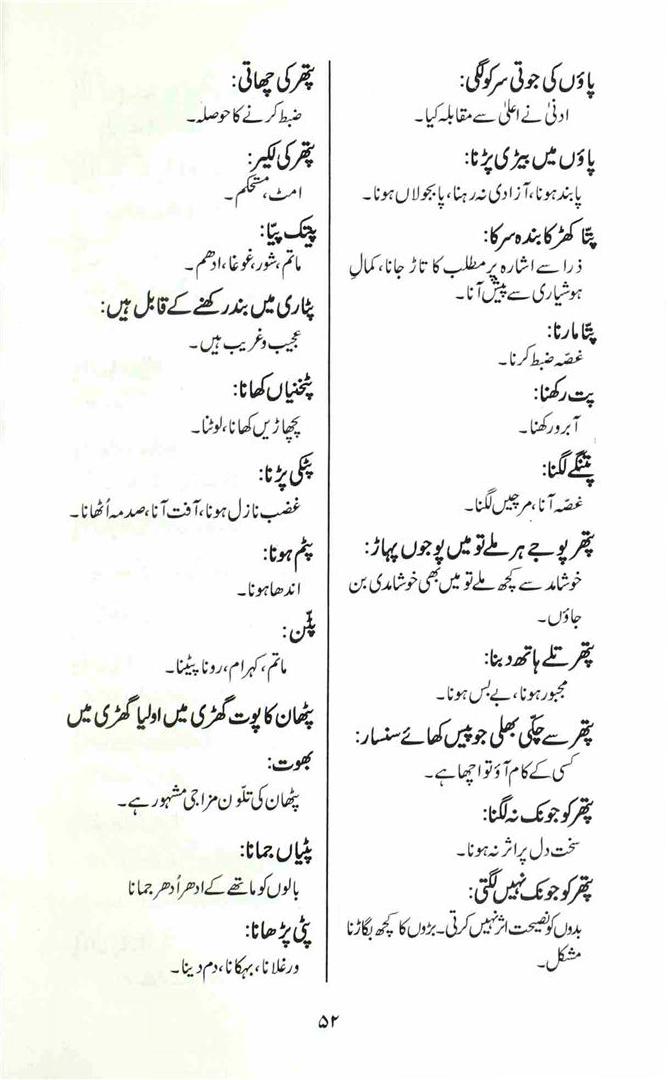 پاؤں کی جوتی سر کو لگی:
ادنیٰ نے اعلیٰ سے مقابلہ کیا۔
پاؤں میں بیڑی پڑنا:
پابند ہونا، آزادی نہ رہنا، پابجولاں ہونا۔
پتّا کھڑکا بندہ سرکا:
ذرا سے اشارہ پر مطلب کا تاڑ جانا، کمالِ
ہوشیاری سے پیش آنا۔
پِتّا مارنا:
غصّہ ضبط کرنا۔
پت رکھنا:
آبرو رکھنا۔
پتنگے لگنا:
غصّہ آنا، مرچیں لگنا۔
پتھر پوجے ہر ملے تو میں پوجوں پہاڑ:
خوشامد سے کچھ ملے تو میں بھی خوشامدی بن
جاؤں۔
پتھر تلے ہاتھ دبنا:
مجبور ہونا، بے بس ہونا۔
پتھر سے چکّی بھلی جو پیس کھائے سنسار:
کسی کے کام آؤ تو اچھا ہے۔
پتھر کو جونک نہ لگنا:
سخت دل پر اثر نہ ہونا۔
پتھر کو جونک نہیں لگتی:
بدوں کو نصیحت اثر نہیں کرتی۔ بڑوں کا کچھ بگاڑنا
مشکل۔
پتھر کی چھاتی:
ضبط کرنے کا حوصلہ۔
پتھر کی لکیر:
امٹ، مستحکم۔
پیتک پیّا:
ماتم، شور، غوغا، ادھم۔
پٹاری میں بند رکھنے کے قابل ہیں:
عجیب و غریب ہیں۔
پٹخنیاں کھانا:
پچھاڑیں کھانا، لوٹنا۔
پٹکی پڑنا:
غضب نازل ہونا، آفت آنا، صدمہ اُٹھانا۔
پٹم ہونا:
اندھا ہونا۔
پٹّن:
ماتم، کہرام، رونا پیٹنا۔
پٹھان کا پوت گھڑی میں اولیا گھڑی میں
بھوت:
پٹھان کی تلّون مزاجی مشہور ہے۔
پٹیاں جمانا:
بالوں کو ماتھے کے ادھر اُدھر جمانا
پٹی پڑھانا:
ورغلانا، بہکانا، دم دینا۔
۵۲